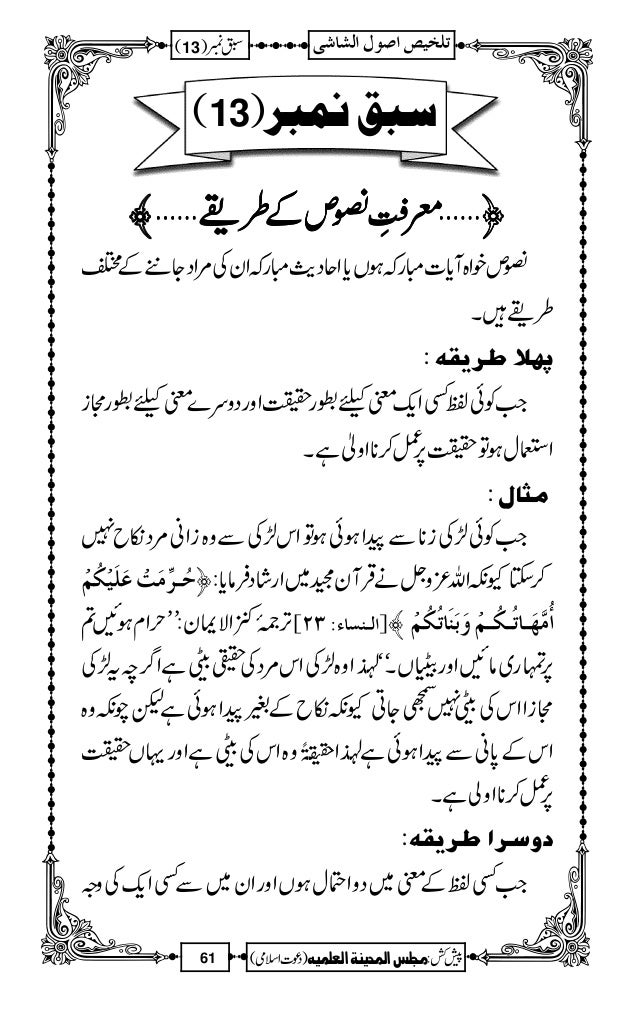 تلخیص اصول الشاشی
سبق نمبر (13)
سبق نمبر (13)
......معرفتِ نصوص کے طریقے......
نصوص خواہ آیات مبارکہ ہوں یا احادیث مبارکہ ان کی مراد جاننے کے مختلف
طریقے ہیں۔
پہلا طریقہ :
جب کوئی لفظ کسی ایک معنی کیلئے بطور حقیقت اور دوسرے معنی کیلئے بطور مجاز
استعمال ہو تو حقیقت پر عمل کرنا اولیٰ ہے۔
مثال :
جب کوئی لڑکی زنا سے پیدا ہوئی ہو تو اس لڑکی سے وہ زانی مرد نکاح نہیں
کر سکتا کیونکہ اللہ عزوجل نے قرآن مجید میں ارشاد فرمایا: ﴿حُرِّمَتْ عَلَيْكُمْ
أُمَّهَاتُكُمْ وَبَنَاتُكُمْ ﴾[النساء: ۲۳] ترجمۂ کنز الایمان: ’’حرام ہوئیں تم
پر تمہاری مائیں اور بیٹیاں۔‘‘ لہذا وہ لڑکی اس مرد کی حقیقی بیٹی ہے اگرچہ یہ لڑکی
مجازا اس کی بیٹی نہیں سمجھی جاتی کیونکہ نکاح کے بغیر پیدا ہوئی ہے لیکن چونکہ وہ
اس کے پانی سے پیدا ہوئی ہے لہذا حقیقۃً وہ اس کی بیٹی ہے اور یہاں حقیقت
پر عمل کرنا اولی ہے۔
دوسرا طریقہ:
جب کسی لفظ کے معنی میں دو احتمال ہوں اور ان میں سے کسی ایک کی وجہ
پیش کش: مجلس المدینۃ العلمیہ (دعوت اسلامی)
61